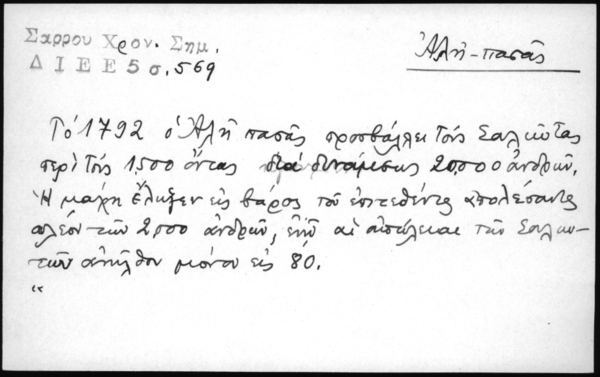 Σαρρου Χρον. Σημ.
Δ Ι Ε Ε 5 σ. 569
Ἀλῆ-πασᾶς
Τό 1792 ὁ Ἀλῆ πασᾶς προσβάλλει τούς Σαλιώτας
περί τούς 1500 ὄντας διά δυνάμεως 20.000 ἀνδρῶν.
Ἡ μάχη ἔληξεν εἰς βάρος τοῦ ἐπιτεθέντος ἀπολέσαντος
πλέον τῶν 2000 ἀνδρῶν, ἐνῶ αἱ ἀπώλειαι τῶν Σαλιω-
τῶν ἀνῆλθον μόνον εἰς 80.
"